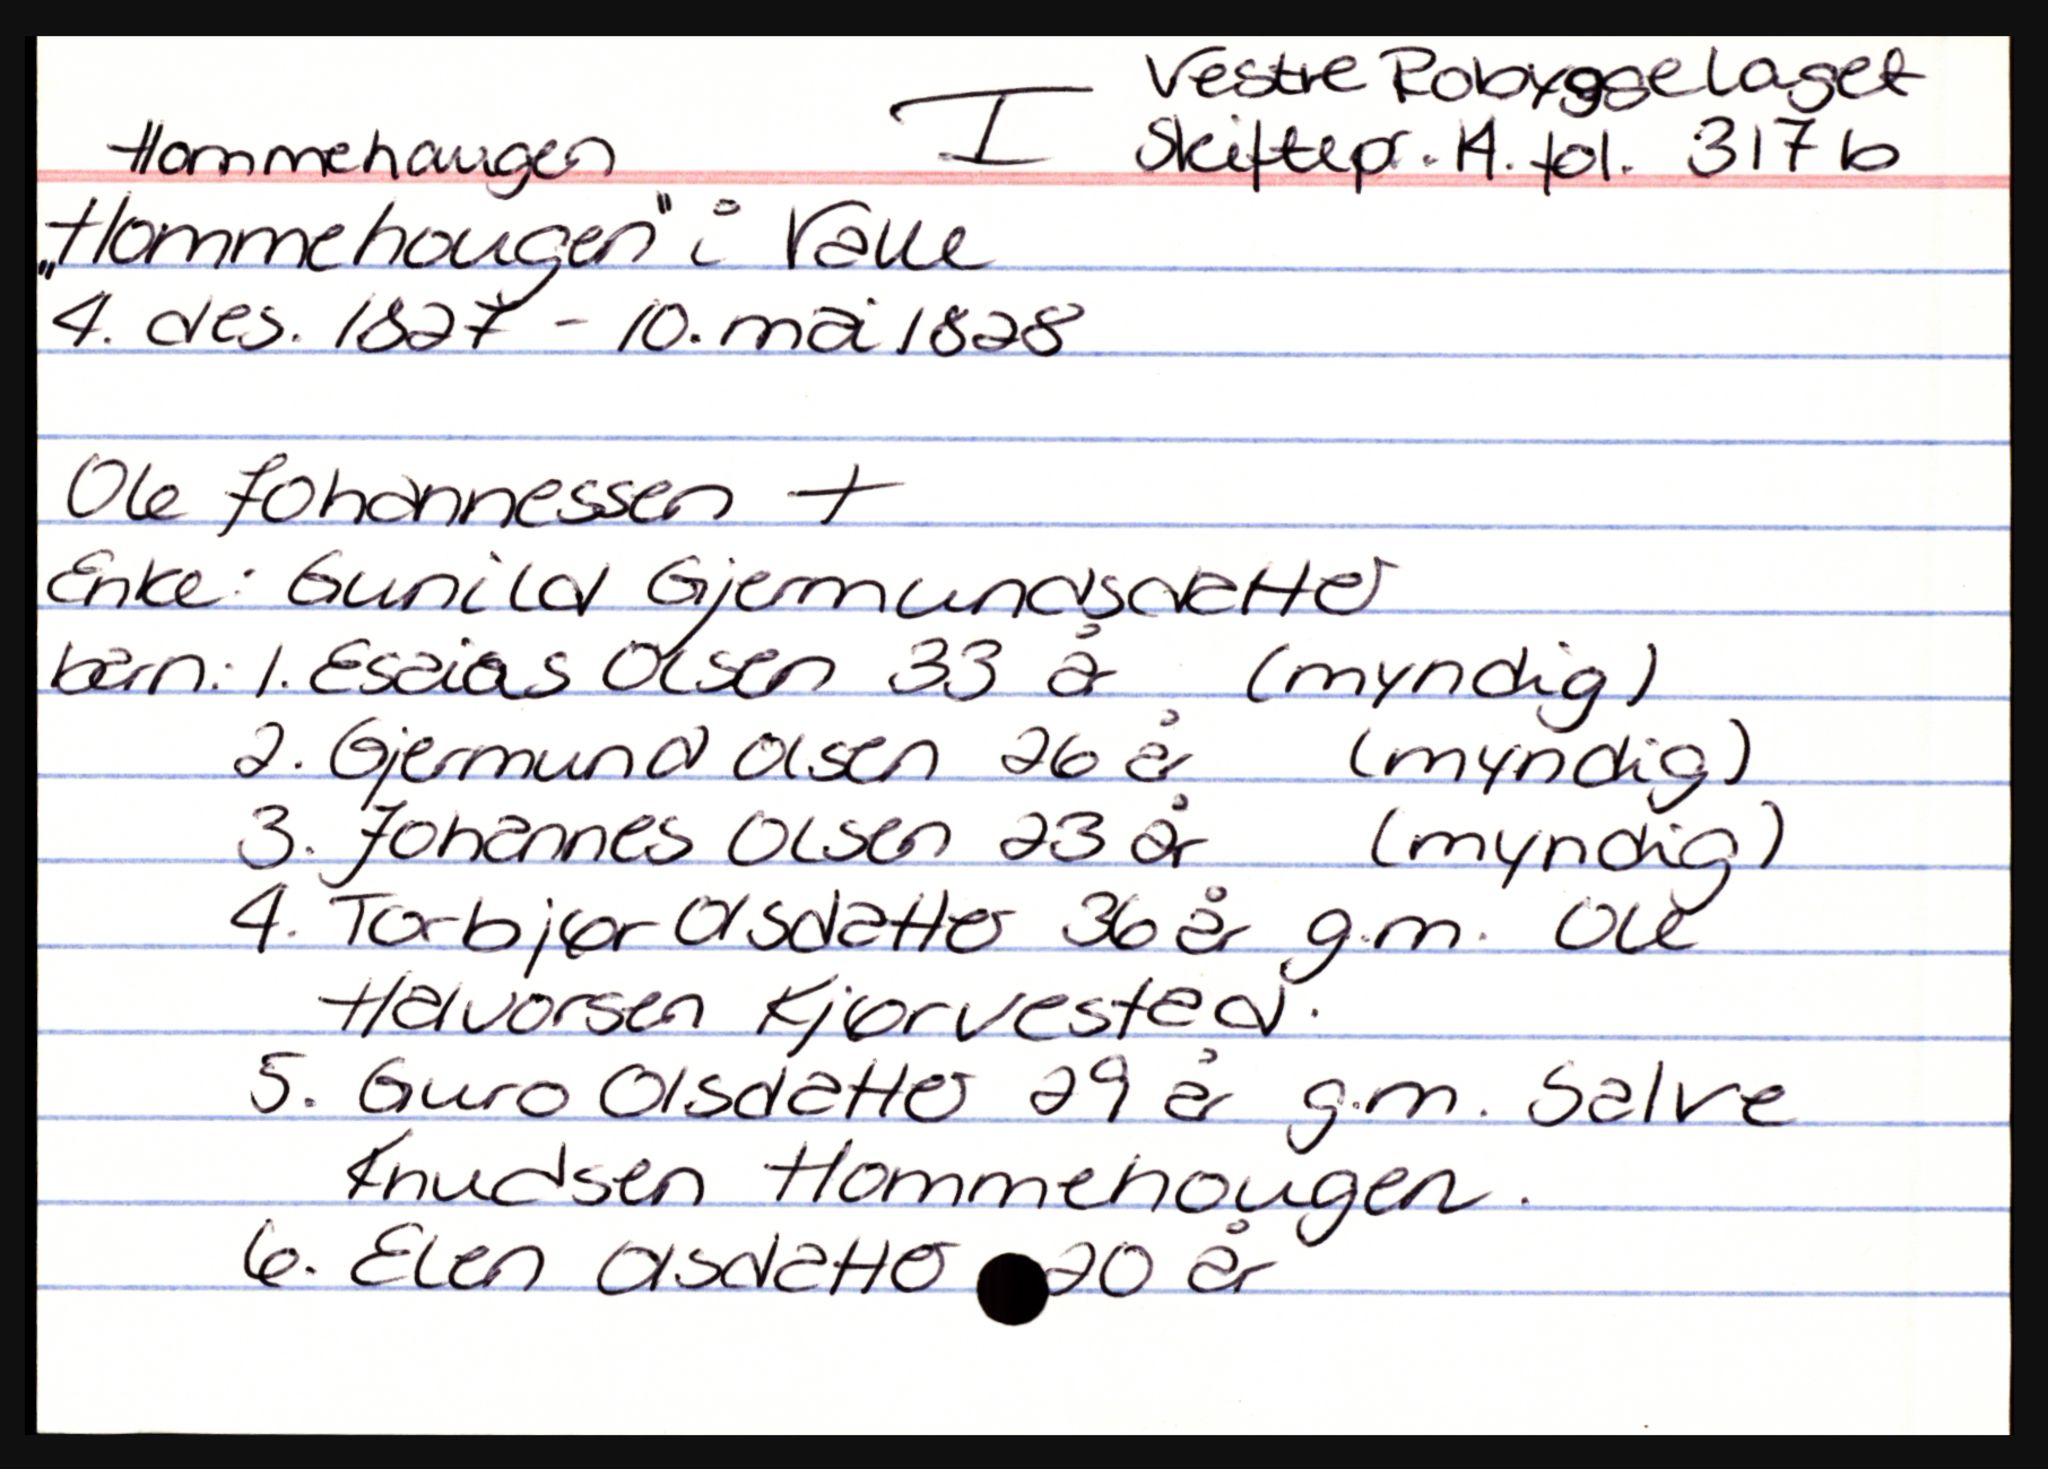 Vestre Robyggelaget
Hommehaugen I Skiftepr. 14. fol. 317 b
„Hommehougen" i Valle
4. des. 1827 - 10. mai 1828
Ole Johannessen +
Enke: Gunild Gjermundsdatter
barn: 1. Esaias Olsen 33 år (myndig)
2. Gjermund Olsen 26 år (myndig)
3. Johannes Olsen 23 år (myndig)
4. Torbjør Olsdatter 36 år g.m. Ole
Halvorsen Kjørvestad.
5. Guro Olsdatter 29 år g.m. Salve
Knudsen Hommehougen.
6. Elen Olsdatter 20 år